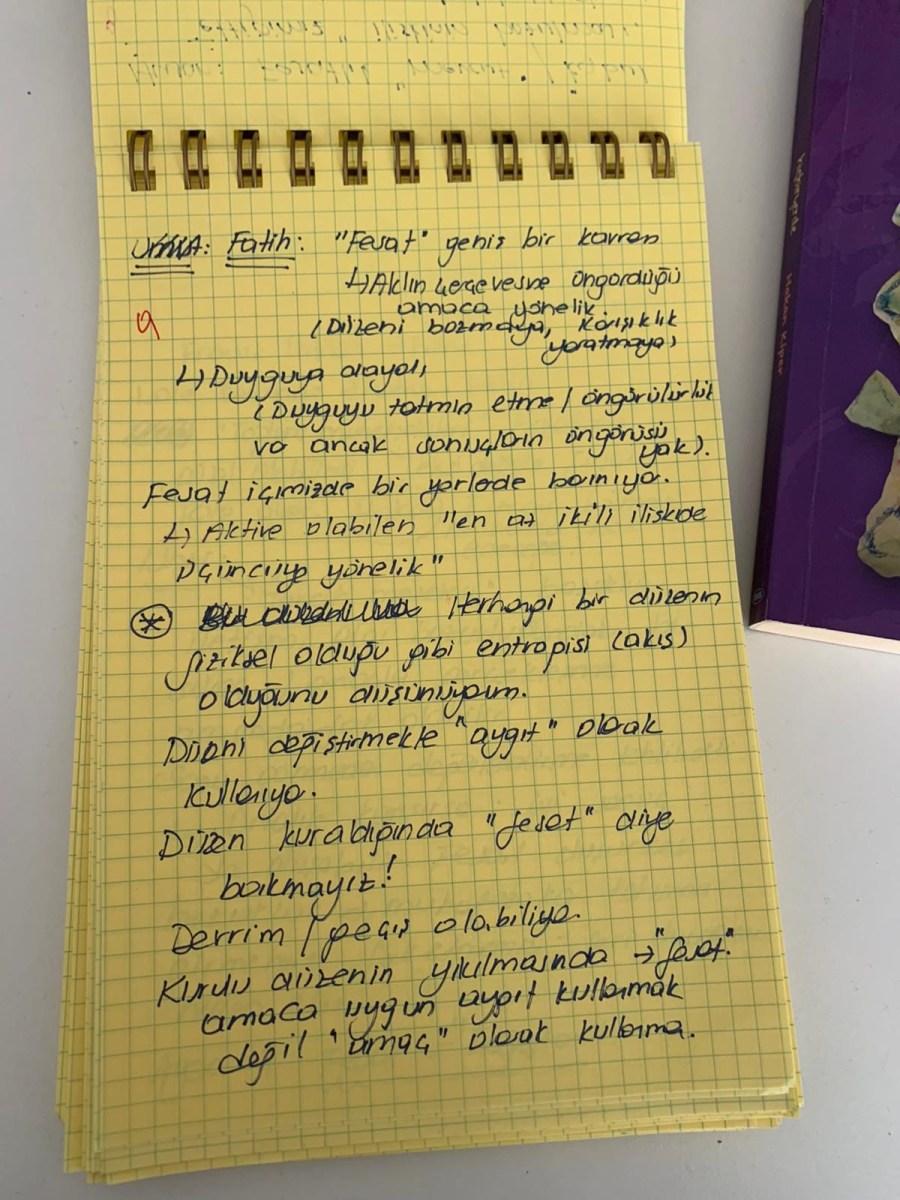 Fatih: "Fesat" geniş bir kavram
↳ Aklın çerçevesine öngördüğü
amaca yönelik.
(Düzeni bozmaya, karışıklık
yaratmaya)
9
↳ Duyguya dayalı,
(Duyguyu tatmin etme / öngörülürlük
va ancak sonuçların öngörüsü
yok).
Fesat içimizde bir yerlerde barınıyo.
↳ Aktive olabilen "en az ikili ilişkide
üçüncüye yönelik"
* Herhangi bir düzenin
fiziksel olduğu gibi entropisi (akış)
olduğunu düşünüyorum.
Düzeni değiştirmekle "aygıt" olarak
kullanıyo.
Düzen kurulduğunda "fesat" diye
bakmayız!
Devrim / geçiş olabiliyo.
Kurulu düzenin yıkılmasında → "fesat".
amaca uygun aygıt kullanmak
değil "amaç" olarak kullanma.
Hakan Kiper